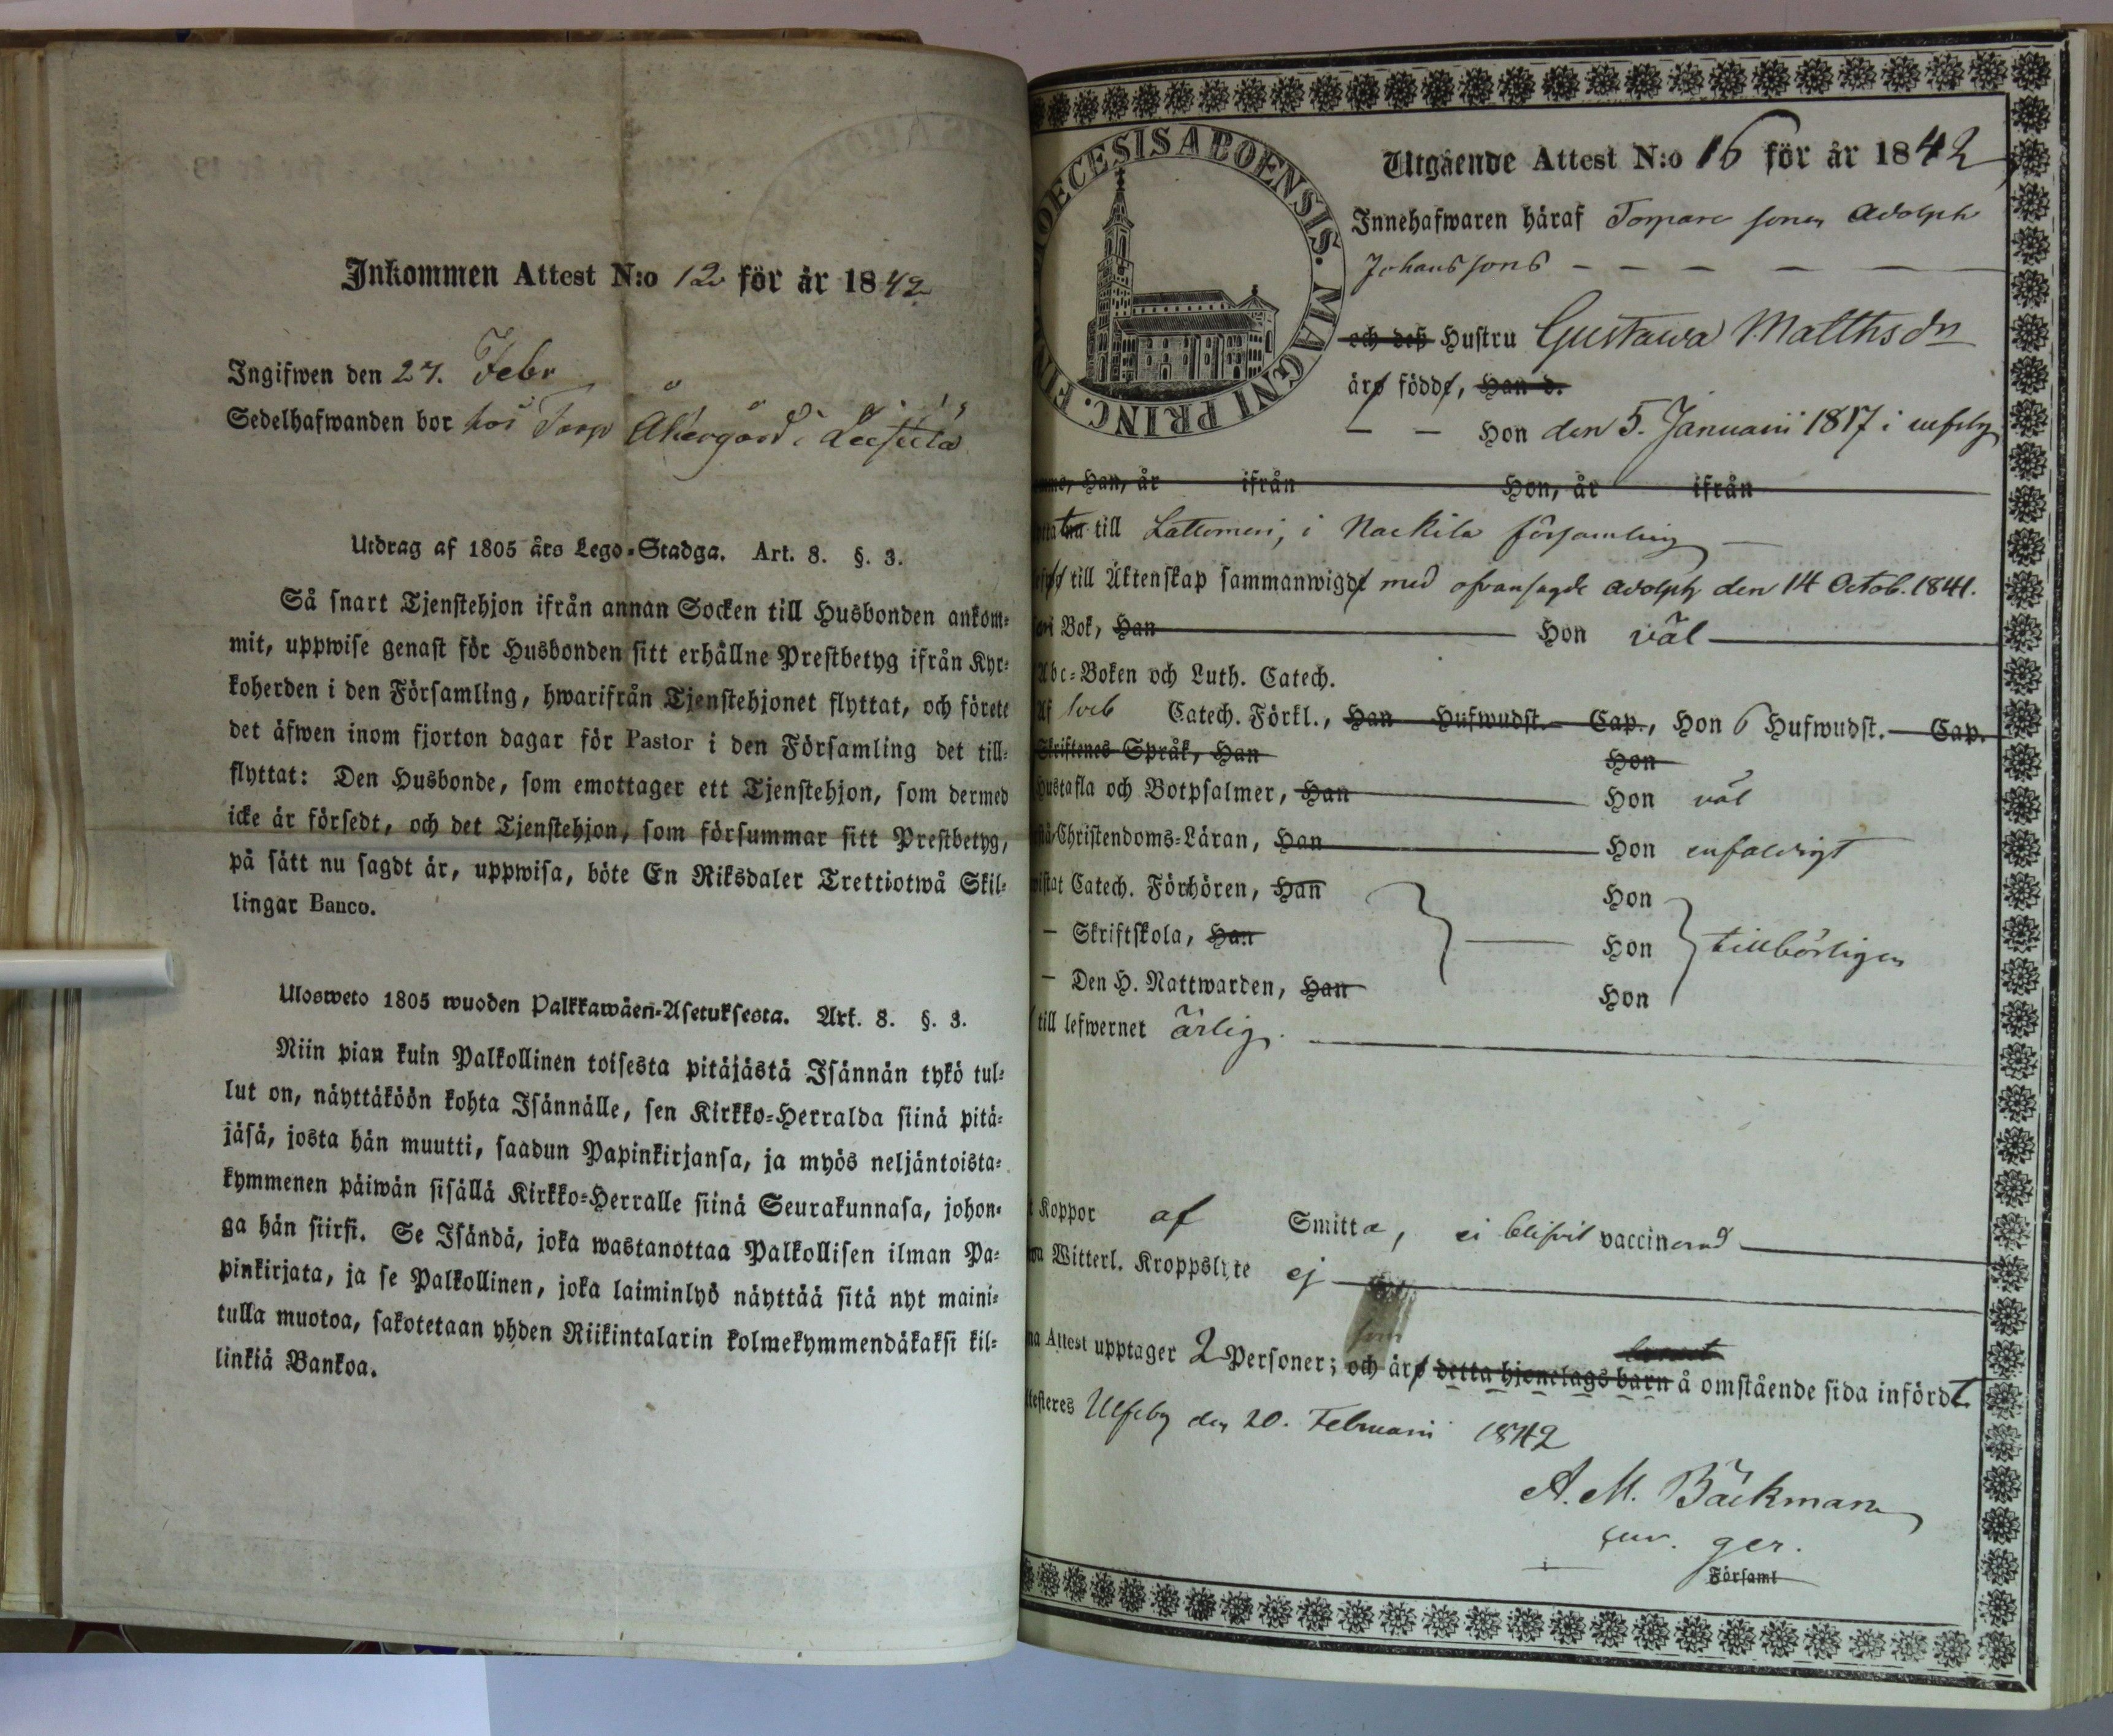 Inkommen Attest N:o 12 för år 1842
Ingifwen den 27. Febr
Sedelhafwanden bor hos Torp Åkergård i
Utdrag af 1805 års Lego-Stadga. Art. 8. §. 3.
Så snart Tjenstehjon ifrån annan Socken till Husbonden ankom-
mit, uppwise genast för Husbonden sitt erhållne Prestbetyg ifrån Kyr-
koherden i den Församling, hwarifrån Tjenstehjonet flyttat, och förete
det äfwen inom fjorton dagar för Pastor i den Församling det till-
flyttat: Den Husbonde, som emottager ett Tjenstehjon, som dermed
icke är försedt, och det Tjenstehjon, som försummar sitt Prestbetyg,
på sätt nu sagdt är, uppwisa, böte En Riksdaler Trettiotwå Skil-
lingar Banco.
Ulosweto 1805 wuoden Palkkawäen-Asetuksesta. Art. 8. §. 3.
Niin pian kuin Palkollinen toisesta pitäjästä Isännän tykö tul-
lut on, näyttäköön kohta Isännälle, sen Kirkko-Herralda siinä pitä-
jäsä, josta hän muutti, saadun Papinkirjansa, ja myös neljäntoista-
kymmenen päiwän sisällä Kirkko-Herralle siinä Seurakunnasa, johon-
ga hän siirsi. Se Isändä, joka wastanottaa Palkollisen ilman Pa-
pinkirjata, ja se Palkollinen, joka laiminlyö näyttää sitä nyt maini-
tulla muotoa, sakotetaan yhden Riikintalarin kolmekymmendäkaksi kil-
linkiä Bankoa.
OECESIS ABOENSIS. MAGNI PRINC. FIN
Utgående Attest N:o 16 för år 1842
Innehafwaren häraf Torpare sonen Adolph
Johanssons
och deß Hustru Gustawa Matthsdr
äro födde, Han d.
Hon den 5. Januarii 1817 i ulfsby
Han, år ifrån Hon, år ifrån
till Lattomeri, i Nackila församling
till Äktenskap sammanwigde med ofvansagde Adolph den 14 Octob. 1841.
i Bok, Han Hon väl
Abc-Boken och Luth. Catech.
Af Sveb Catech. Förkl., Han Hufwudst. Cap., Hon 6 Hufwudst. Cap.
Skriftenes Språk, Han Hon
Hustafla och Botpsalmer, Han Hon väl
Christendoms-Läran, Han Hon enfaldigt
Catech. Förhören, Han Hon
- Skriftskola, Han Hon tillbörligen
- Den H. Nattwarden, Han Hon
till lefwernet ärlig.
Koppor af Smitta, ei blifvit vaccinerad
Witterl. Kroppslyte ej
Attest upptager 2 Personer; och som äro detta hjonelags barn å omstående sida infördt
Ulfsby den 20. Februarii 1842
A. M. Bäckman
ger.
Församl